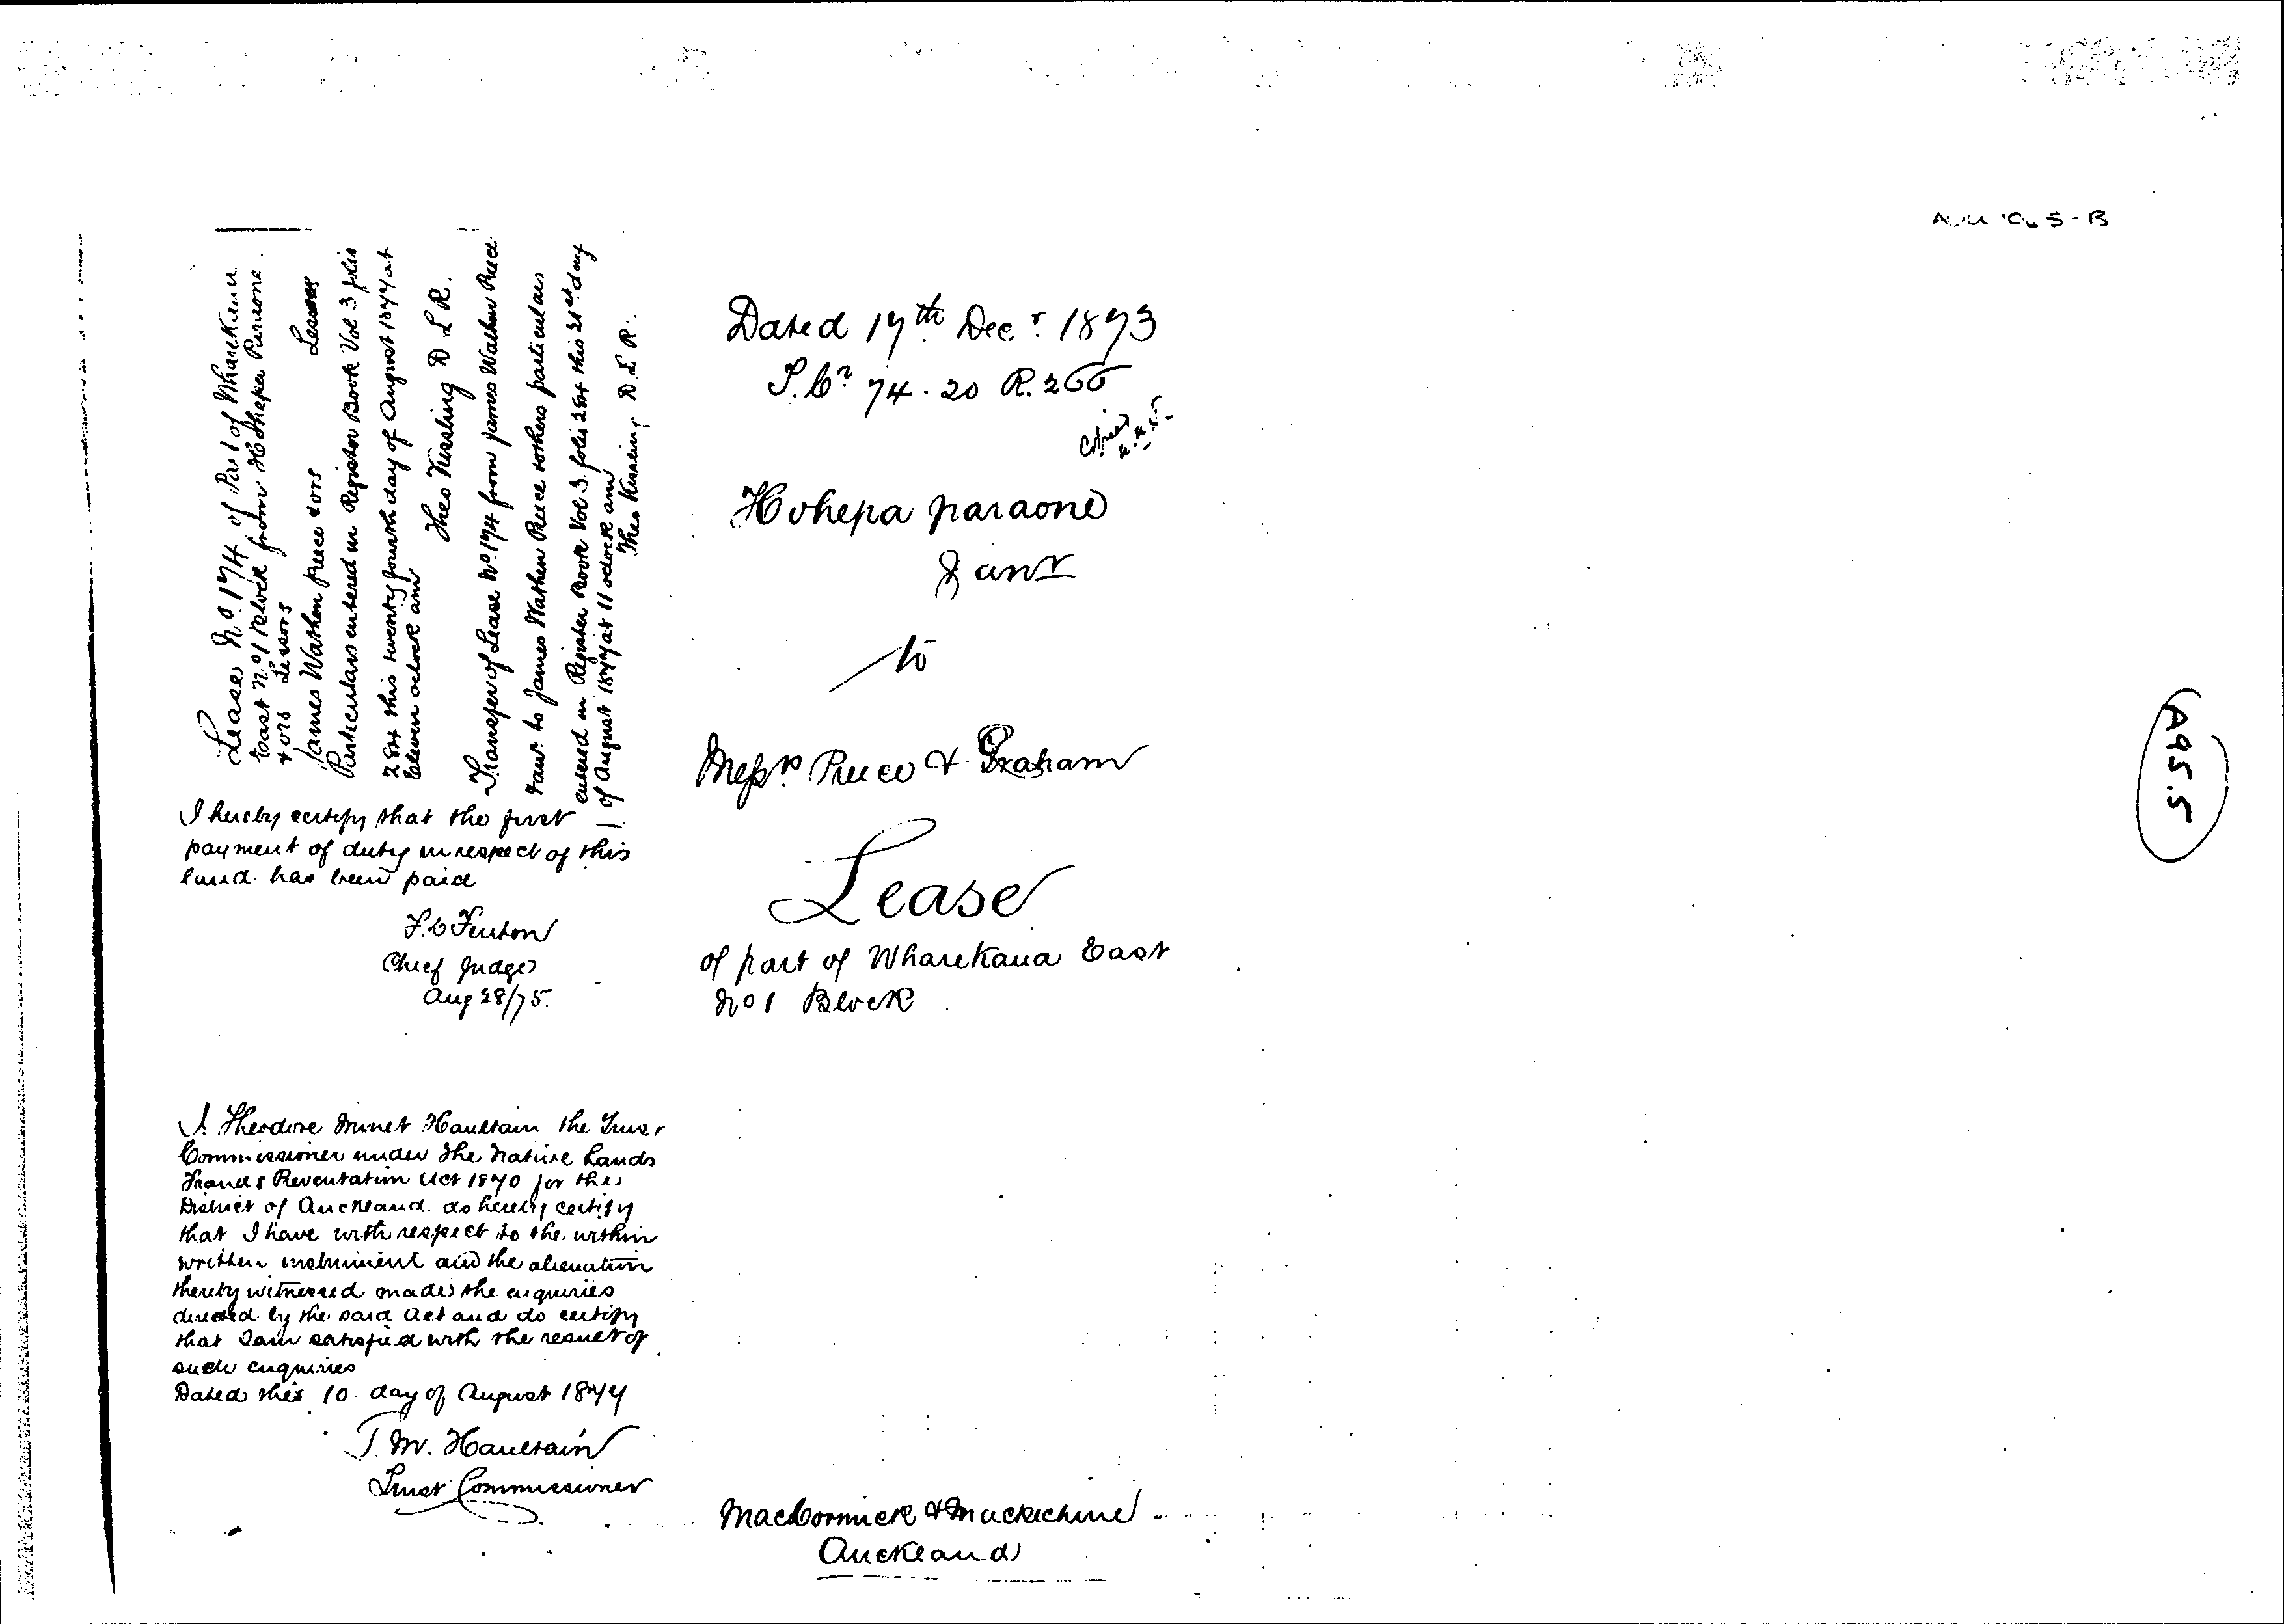 Lease No. 174 of Part of Wharekawa
East No. 1 Block from Hohepa Paraone
& ors Lessors
James Wathen Preece & ors Lessees
Particulars entered in Register Book Vol 3 folio
284 this twenty fourth day of August 1877 at
Eleven oclock am
Theo Kissling D L R.
Transfer of Lease No. 174 from James Wathen Preece
& anr. to James Wathen Preece & others particulars
entered in Register Book Vol 3. folio 284 this 21st day
of August 1877 at 11 oclock am
Theo Kissling D. L. R.
I hereby certify that the first
payment of duty in respect of this
land has been paid
F. D Fenton
Chief Judge
Aug 28/75.
I. Theodore Minet Haultain the Trust
Commissioner under the Native Lands
Frauds Prevention Act 1870 for the
District of Auckland. do hereby certify
that I have with respect to the within
written instrument and the alienation
thereby witnessed made the enquiries
directed by the said Act and do certify
that I am satisfied with the result of
such enquiries
Dated this 10 day of August 1877
T. M. Haultain
Trust Commissioner
Dated 17th Decr. 1873
74. 20 R. 266
Copied
Hohepa paraone
& anr
to
Messrs. Preece & Graham
Lease
of part of Wharekaua East
No 1 Block
MacCormick & Mackechnie
Auckland
A95.5